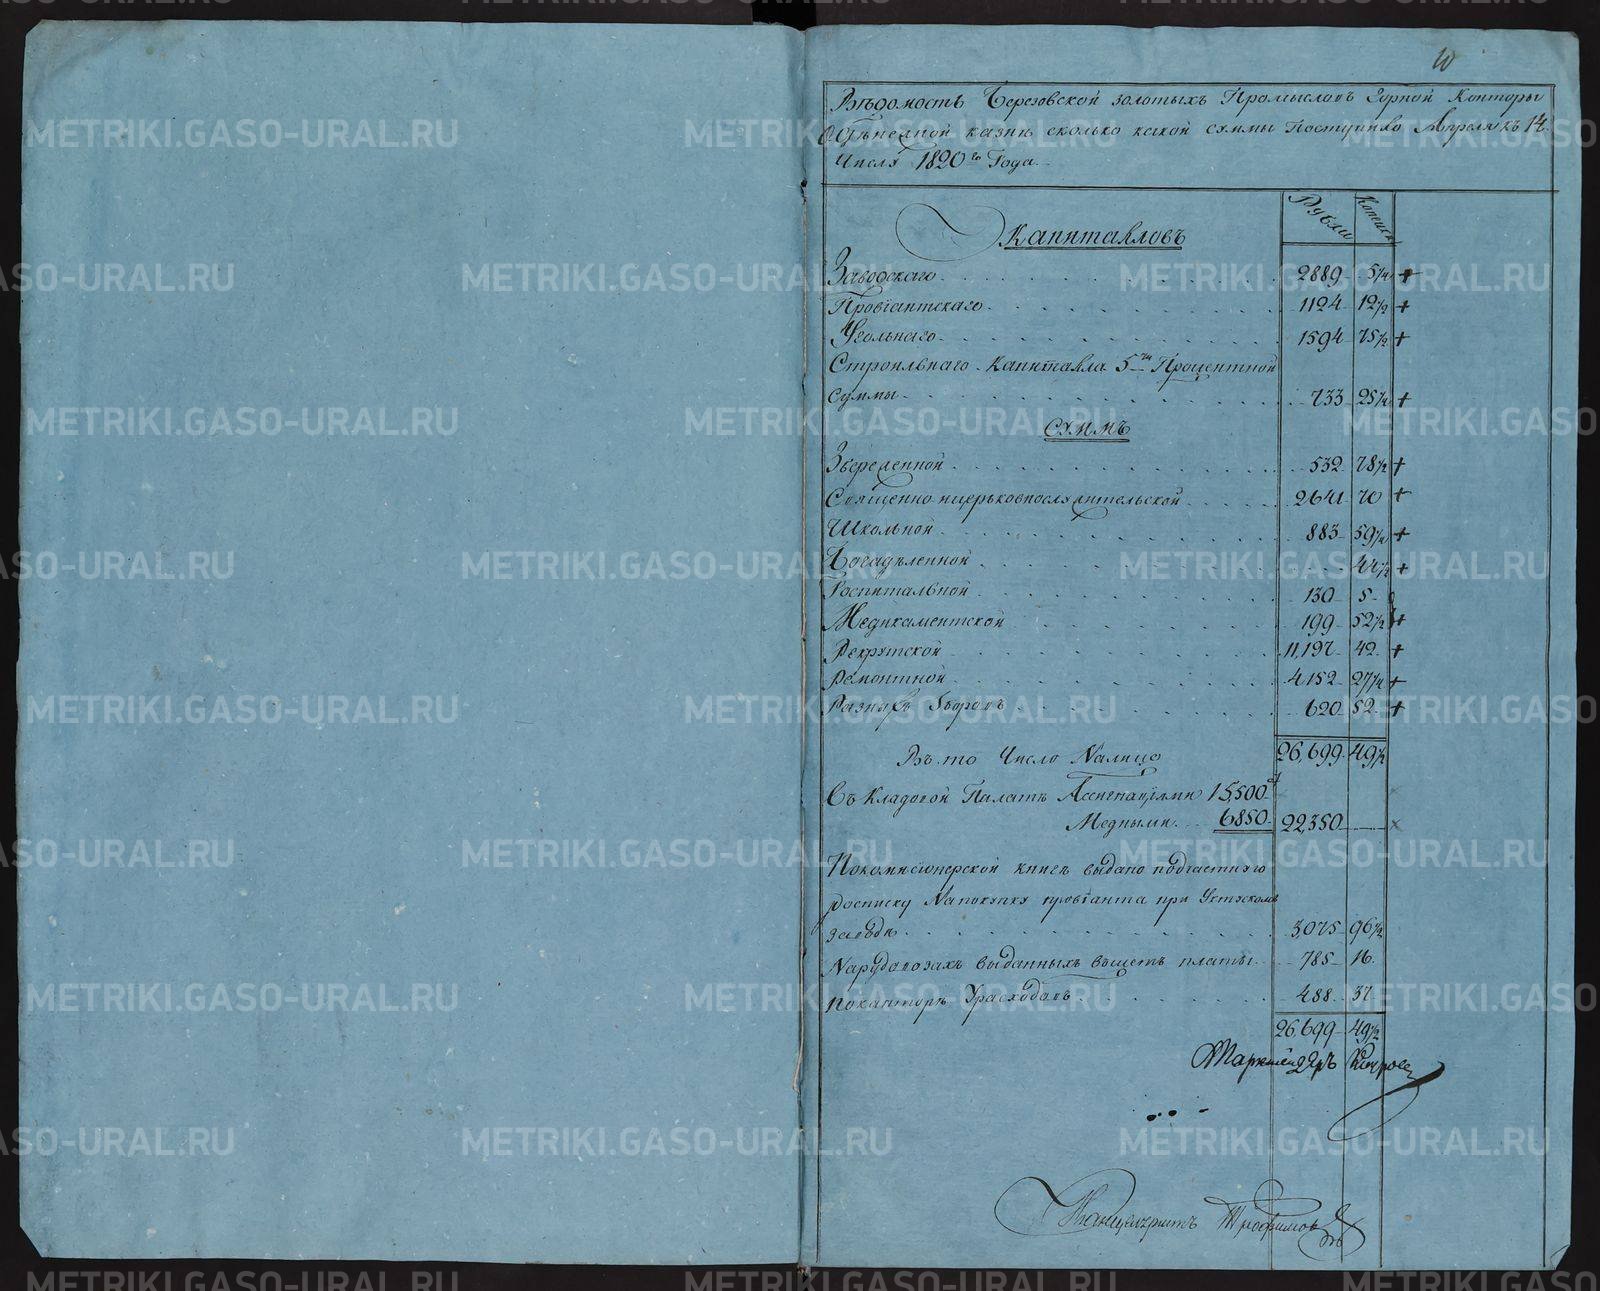 10
Вѣдомость Березовской золотыхъ Промысловъ Горной Конторы
О Дѣнежной казнѣ сколько какой суммы Поступило Апреля къ 14
Числа 1820го Года.
Рубли Копейки
Капиталовъ
Заводскаго 2889 5 1/4 +
Провiантскаго 1124 12 1/2 +
Угольнаго 1594 75 1/2 +
Строильнаго Капитала 5ти Процентной
Суммы 733 25 1/4 +
Суммъ
Збереженной 532 78 1/2 +
Священно ицерьковнослужительской 2641 70 +
Школьной 883 59 1/4 +
Богадѣленной 44 1/2 +
Госпитальной 130 5
Медикаментской 199 52 1/2 +
Рекрутской 11,197 42 +
Ремонтной 4152 27 1/4 +
Разныхъ Зборовъ 620 52 +
Въ то Число Налицо 26,699 49 1/2
Въ Кладовой Палатѣ Ассигнацiями 15,500
Медными 6850 22,350 x
Покомисiонерской книгѣ выдано подчастную
росписку Напокупку провiанта при Уткускомъ
заводѣ 3,075 96 1/2
Нарудовозахъ выданныхъ въщетъ платы 785 16
Поканторѣ Урасходовъ 488 37
26,699 49 1/2
Маркшейдеръ
Канцеляристъ Трофимовъ
METRIKI.GASO-URAL.RU